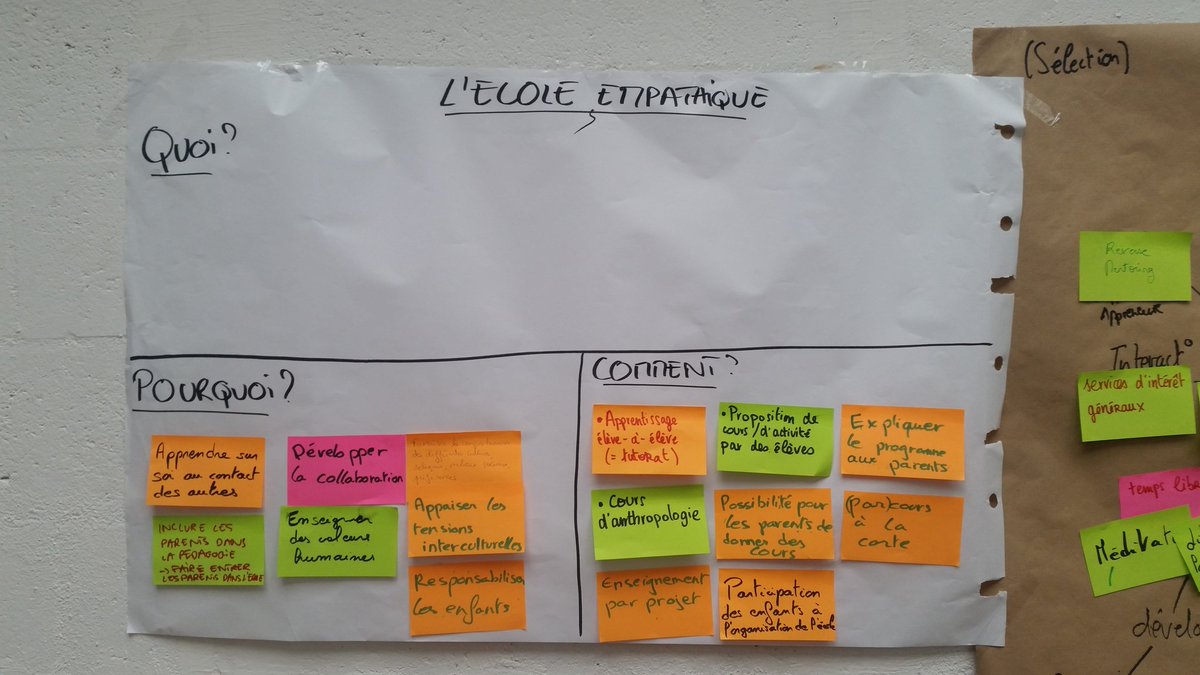 L'ECOLE EMPATHIQUE
QUOI?
POURQUOI?
Apprendre sur
soi au contact
des autres
INCLURE LES
PARENTS DANS
LA PÉDAGOGIE
→ FAIRE ENTRER
LES PARENTS DANS L'ÉCOLE
Développer
la collaboration
Enseigner
des valeurs
humaines
Appaiser les
tensions
interculturelles
Responsabiliser
les enfants
COMMENT?
• Apprentissage
élève-à-élève
(= tutorat)
• Proposition de
cours/d'activité
par des élèves
Expliquer
le programme
aux parents
• Cours
d'anthropologie
Possibilité pour
les parents de
donner des
cours
(Par)cours
à la
carte
Enseignement
par projet
Participation
des enfants à
l'organisation de l'école
(Sélection)
Reverse
Mentoring
Appreneur
Interact°
services d'intérêt
généraux
temps libr
Méditati
dévelo